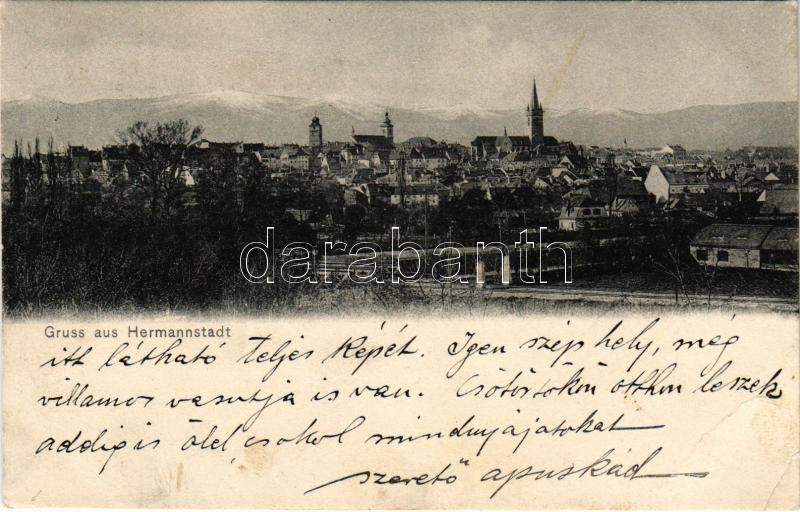 darabanth
Gruss aus Hermannstadt
itt látható teljes képét. Igen szép hely, még
villamos vasutja is van. Csötörtökön otthon leszek
addig is ölel, csokol mindnyájatokat
szerető apuskád